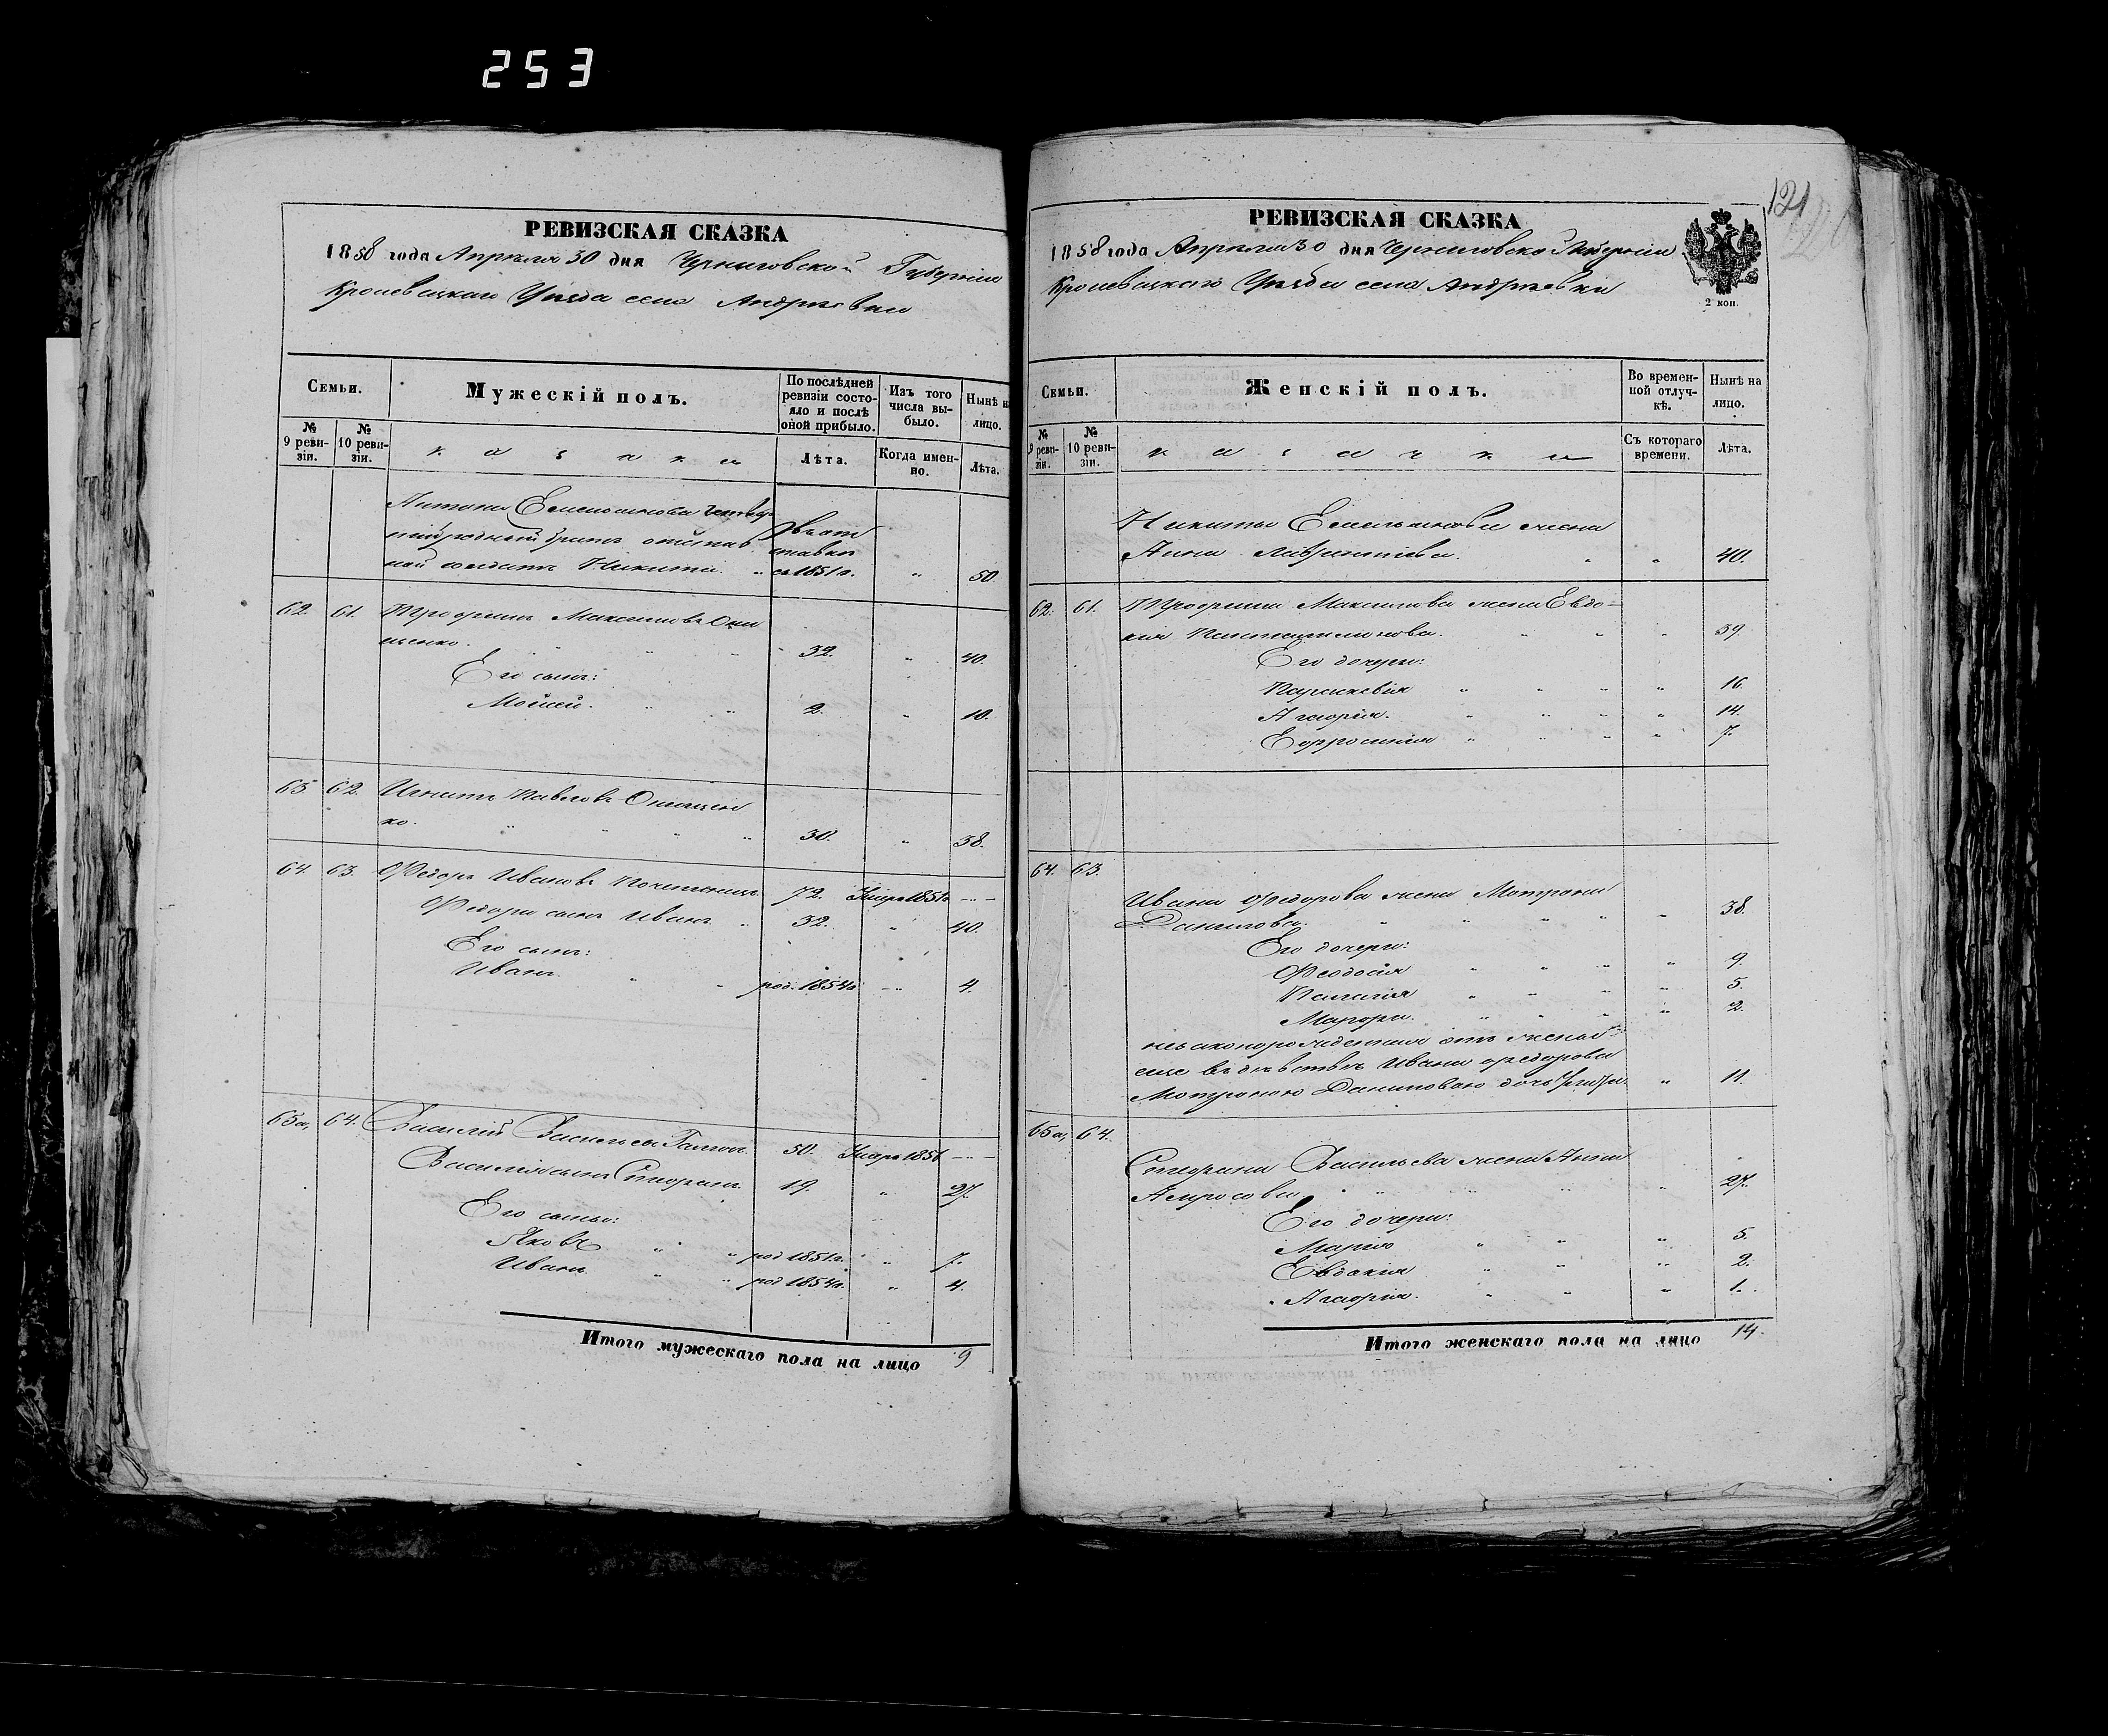 253
РЕВИЗСКАЯ СКАЗКА
1858 года Апреля 30 дня Черниговской Губернии
Кролевецкаго Уезда села Андреевки
Семьи.
Мужескій полъ.
По послѣдней ревизіи состояло и послѣ оной прибыло.
Изъ того числа выбыло.
Нынѣ н лицо.
№ 9 ревизіи.
№ 10 ревизіи.
казаки
Лѣта.
Когда именно.
Лѣта.
Антона Емельянова
родный братъ отстав
ной солдатъ Никита " съ 1851 г. " 50.
62. 61. Трофимъ Максимовъ Они
щенко. 32. " 40.
Его сынъ:
Мойсей. 2. " 10.
63. 62. Игнатъ Павловъ Онищен
ко. 30. " 38.
64. 63. Федоръ Ивановъ 72. Умеръ 1851 г. —
Федора сынъ Иванъ 32. " 40.
Его сынъ:
Иванъ род. 1854 г. — 4.
65а, 64. Василій Васильевъ 50. Умеръ 1856 —
Василія сынъ 19. " 27.
Его сыны:
Яковъ род 1851 г. " 7.
Иванъ род 1854 г. " 4.
Итого мужескаго пола на лицо 9
121
РЕВИЗСКАЯ СКАЗКА
1858 года Апреля 30 дня Черниговской Губернии
Кролевецкаго Уезда села Андреевки
2 коп.
Семьи.
Женскій полъ.
Во временной отлучкѣ.
Нынѣ на лицо.
№ 9 ревизіи.
№ 10 ревизіи.
казачки
Съ котораго времени.
Лѣта.
Никиты Емельянова жена
Анна " 40.
62. 61. Трофима Максимова жена Евдо-
кия " 39.
Его дочери:
Параскевія " 16.
Агафія. " 14.
Ефросинія " 7.
64. 63.
Ивана Федорова жена Матрона
Данилова. " 38.
Его дочери:
Феодосія " 9.
Пелагія " 5.
Марфа. " 2.
незаконорожденная отъ жены
еще въ девстве Ивана Федорова
Матроною Даниловою дочь " 11.
65а, 64.
Васильева жена Анна
" 27.
Его дочери:
Марія " 5.
Евдокія " 2.
Агафія. " 1.
Итого женскаго пола на лицо 14.